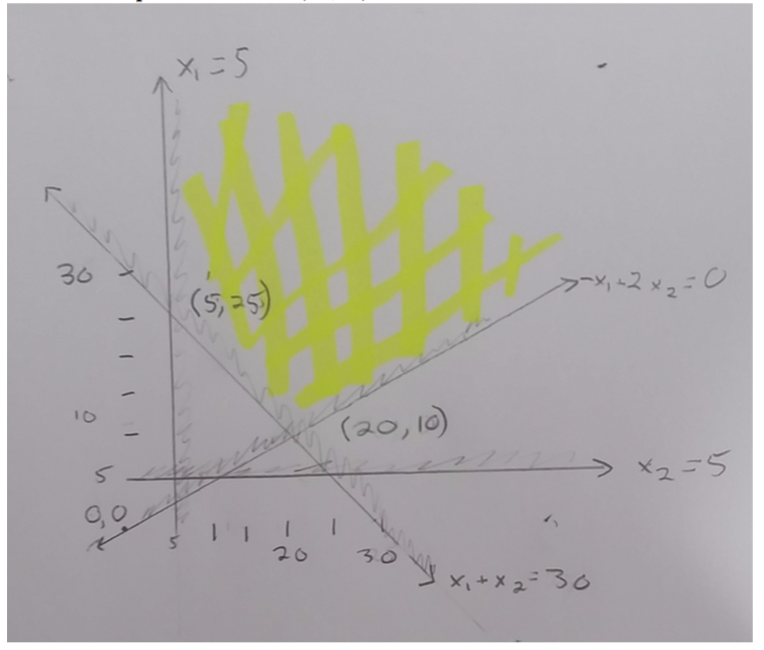 x₁ = 5
30
(5, 25)
-x₁+2 x₂ = 0
10
(20, 10)
5
x₂ = 5
0,0
5
20
30
x₁ + x₂ = 30